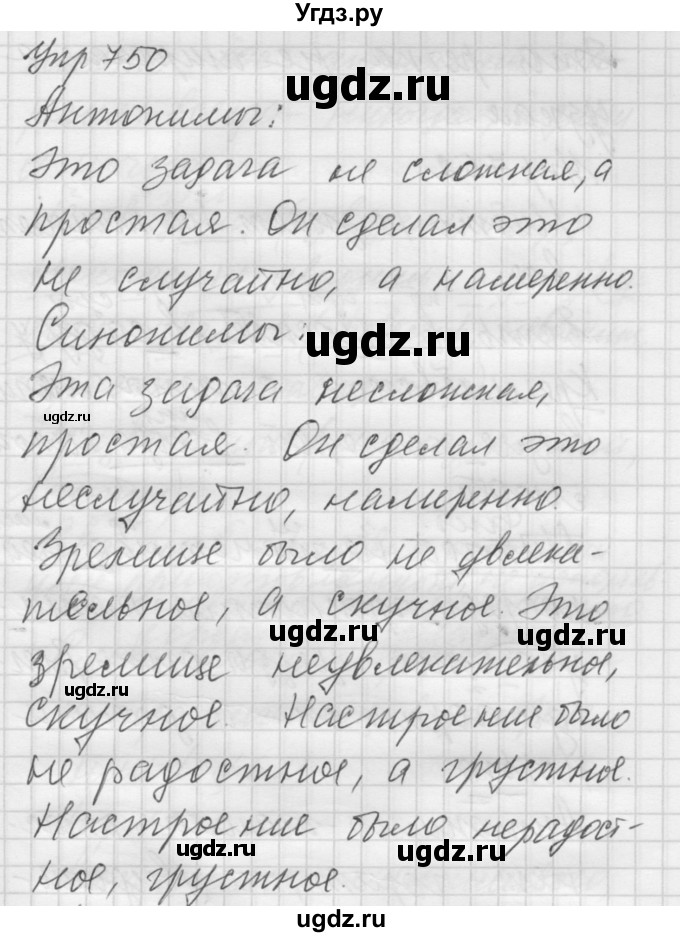 Угдз.ру
Упр 750
ugdz.ru
Антонимы:
Это задача не сложная, а
простая. Он сделал это
не случайно, а намеренно.
Синонимы:
ugdz.ru
Эта задача несложная,
ugdz.ru
простая. Он сделал это
неслучайно, намеренно.
Зрелище было не увлека-
тельное, а скучное. Это
ugdz.ru
ugdz.ru
зрелище неувлекательное,
ugdz.ru
скучное. Настроение было
не радостное, а грустное.
Настроение было нерадост-
ugdz.ru
ugdz.ru
ное, грустное.
ugdz.ru